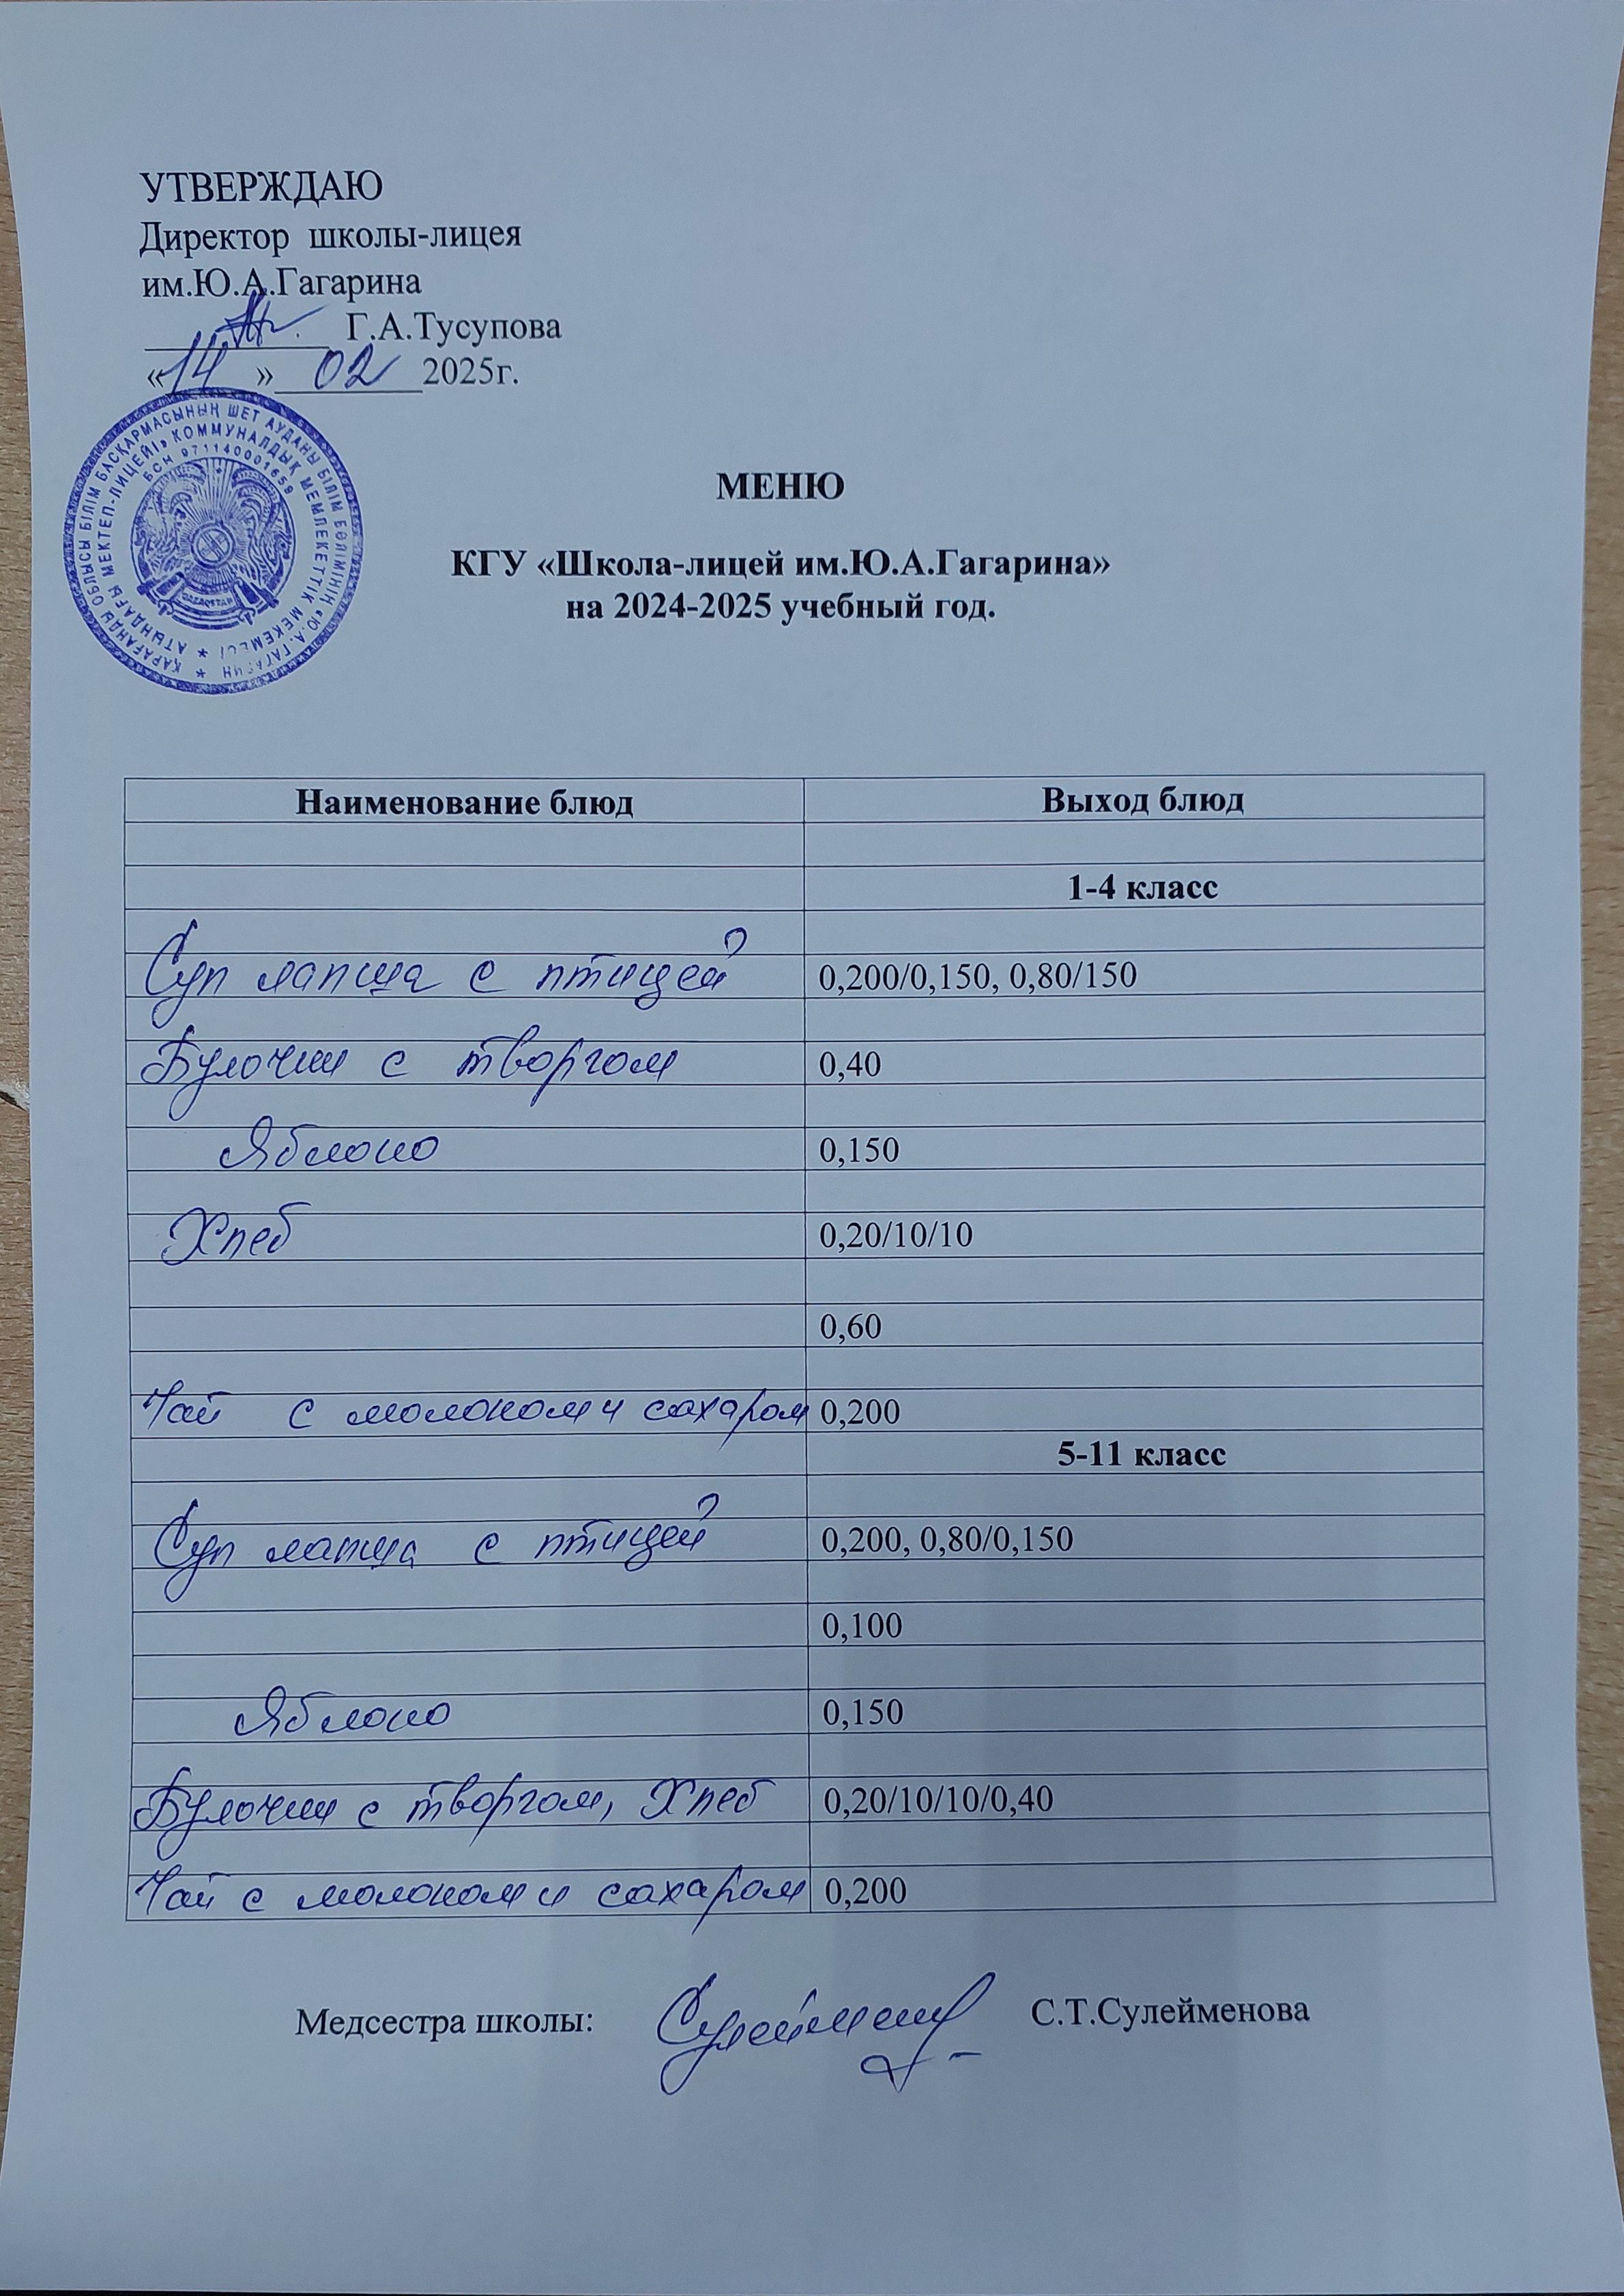 УТВЕРЖДАЮ
Директор школы-лицея
им.Ю.А.Гагарина
Г.А.Тусупова
«14» 02 2025г.
ҚАРАҒАНДЫ ОБЛЫСЫ БІЛІМ БАСҚАРМАСЫНЫҢ ШЕТ АУДАНЫ БІЛІМ БӨЛІМІНІҢ «Ю.А.ГАГАРИН
АТЫНДАҒЫ МЕКТЕП-ЛИЦЕЙІ» КОММУНАЛДЫҚ МЕМЛЕКЕТТІК МЕКЕМЕСІ
БСН 971140001659
ҚАЗАҚСТАН
МЕНЮ
КГУ «Школа-лицей им.Ю.А.Гагарина»
на 2024-2025 учебный год.
Наименование блюд Выход блюд
1-4 класс
Суп лапша с птицей 0,200/0,150, 0,80/150
Булочки с творгом 0,40
Яблоко 0,150
Хлеб 0,20/10/10
0,60
Чай с молоком и сахаром 0,200
5-11 класс
Суп лапша с птицей 0,200, 0,80/0,150
0,100
Яблоко 0,150
Булочки с творгом, Хлеб 0,20/10/10/0,40
Чай с молоком и сахаром 0,200
Медсестра школы: С.Т.Сулейменова